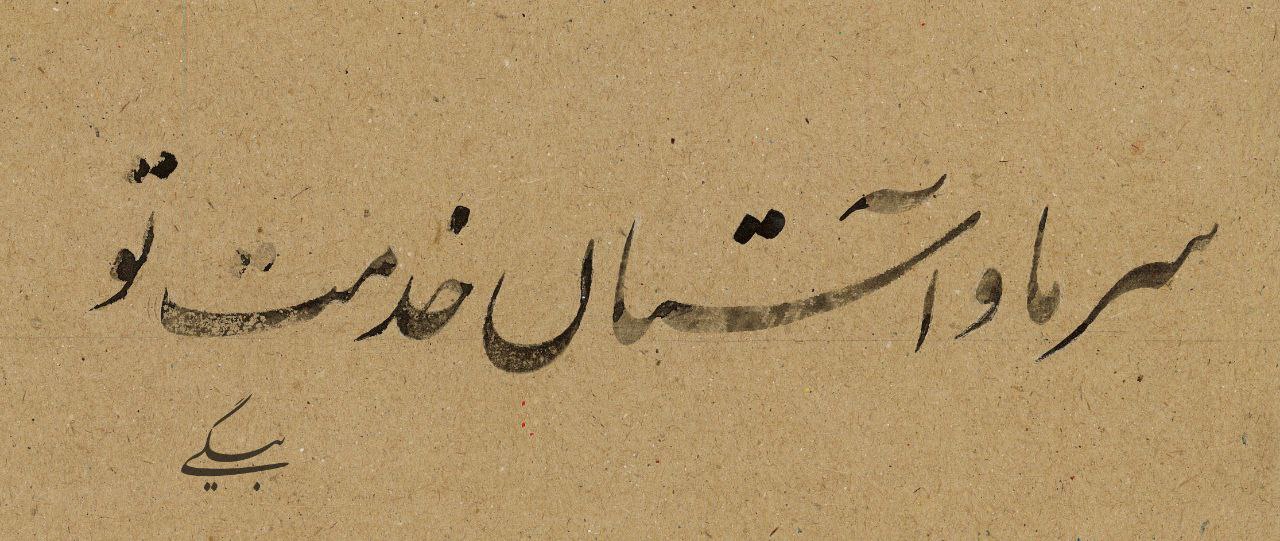 سر ما و آستان خدمت تو